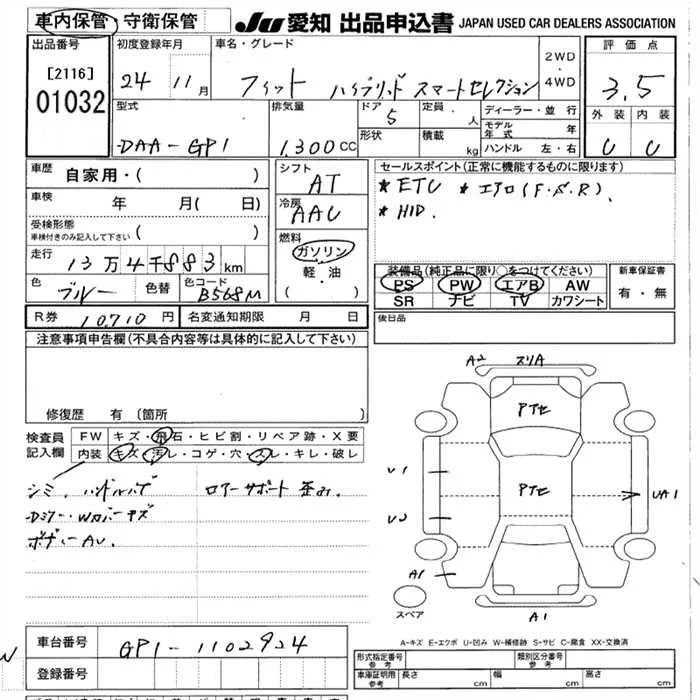 車内保管 ・ 守衛保管
JU 愛知 出品申込書 JAPAN USED CAR DEALERS ASSOCIATION
出品番号
[2116]
01032
初度登録年月
24 11月
車名・グレード
フィット ハイブリッド スマートセレクション
2WD
・
4WD
評価点
3.5
外装 内装
C C
型式
DAA-GP1
排気量
1.300 CC
ドア 5
形状
定員 人
積載 kg
ディーラー・並行
モデル年式 年
ハンドル 左・右
車歴 自家用・( )
車検 年 月( 日)
受検形態
車検付きのみ記入して下さい ( )
走行 13万4千883km
色 ブルー 色替 色コード B568M
シフト
AT
冷房
AAC
燃料
ガソリン
・
軽・油
( )
セールスポイント(正常に機能するものに限ります)
* ETC * エアロ(F.S.R).
* HID.
装備品(純正品に限り○をつけてください)
PS PW エアB AW
SR ナビ TV カワシート
新車保証書
有・無
R券 10,710円 名変通知期限 月 日
後日品
注意事項申告欄(不具合内容等は具体的に記入して下さい)
修復歴 有〔箇所 〕
検査員
記入欄
FW キズ・飛石・ヒビ割・リペア跡・X要
内装 キズ・汚レ・コゲ・穴・スレ・キレ・破レ
シミ、ハンドルハゲ ロアーサポート歪み.
Dミラー・Wカバーキズ
ボディーAU.
A2 スリA
Pアセ
Pアセ
U1
U2
UA1
A1
A1
スペア
A-キズ E-エクボ U-凹み W-補修跡 S-サビ C-腐食 XX-交換済
車台番号 GP1-1102924
登録番号
形式指定番号
参考
類別区分番号
参考
車庫証明用
参考
長さ cm 幅 cm 高さ cm